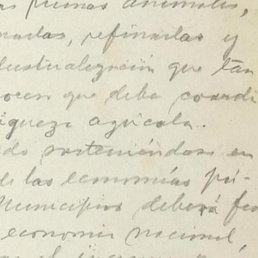 as primas animales,
nadas, refinadas y
dustrialización que tan
ocen que debe coordi
iqueza agrícola.
do sosteniéndose en
de las economías pri-
Municipios deberá
economía nacional,